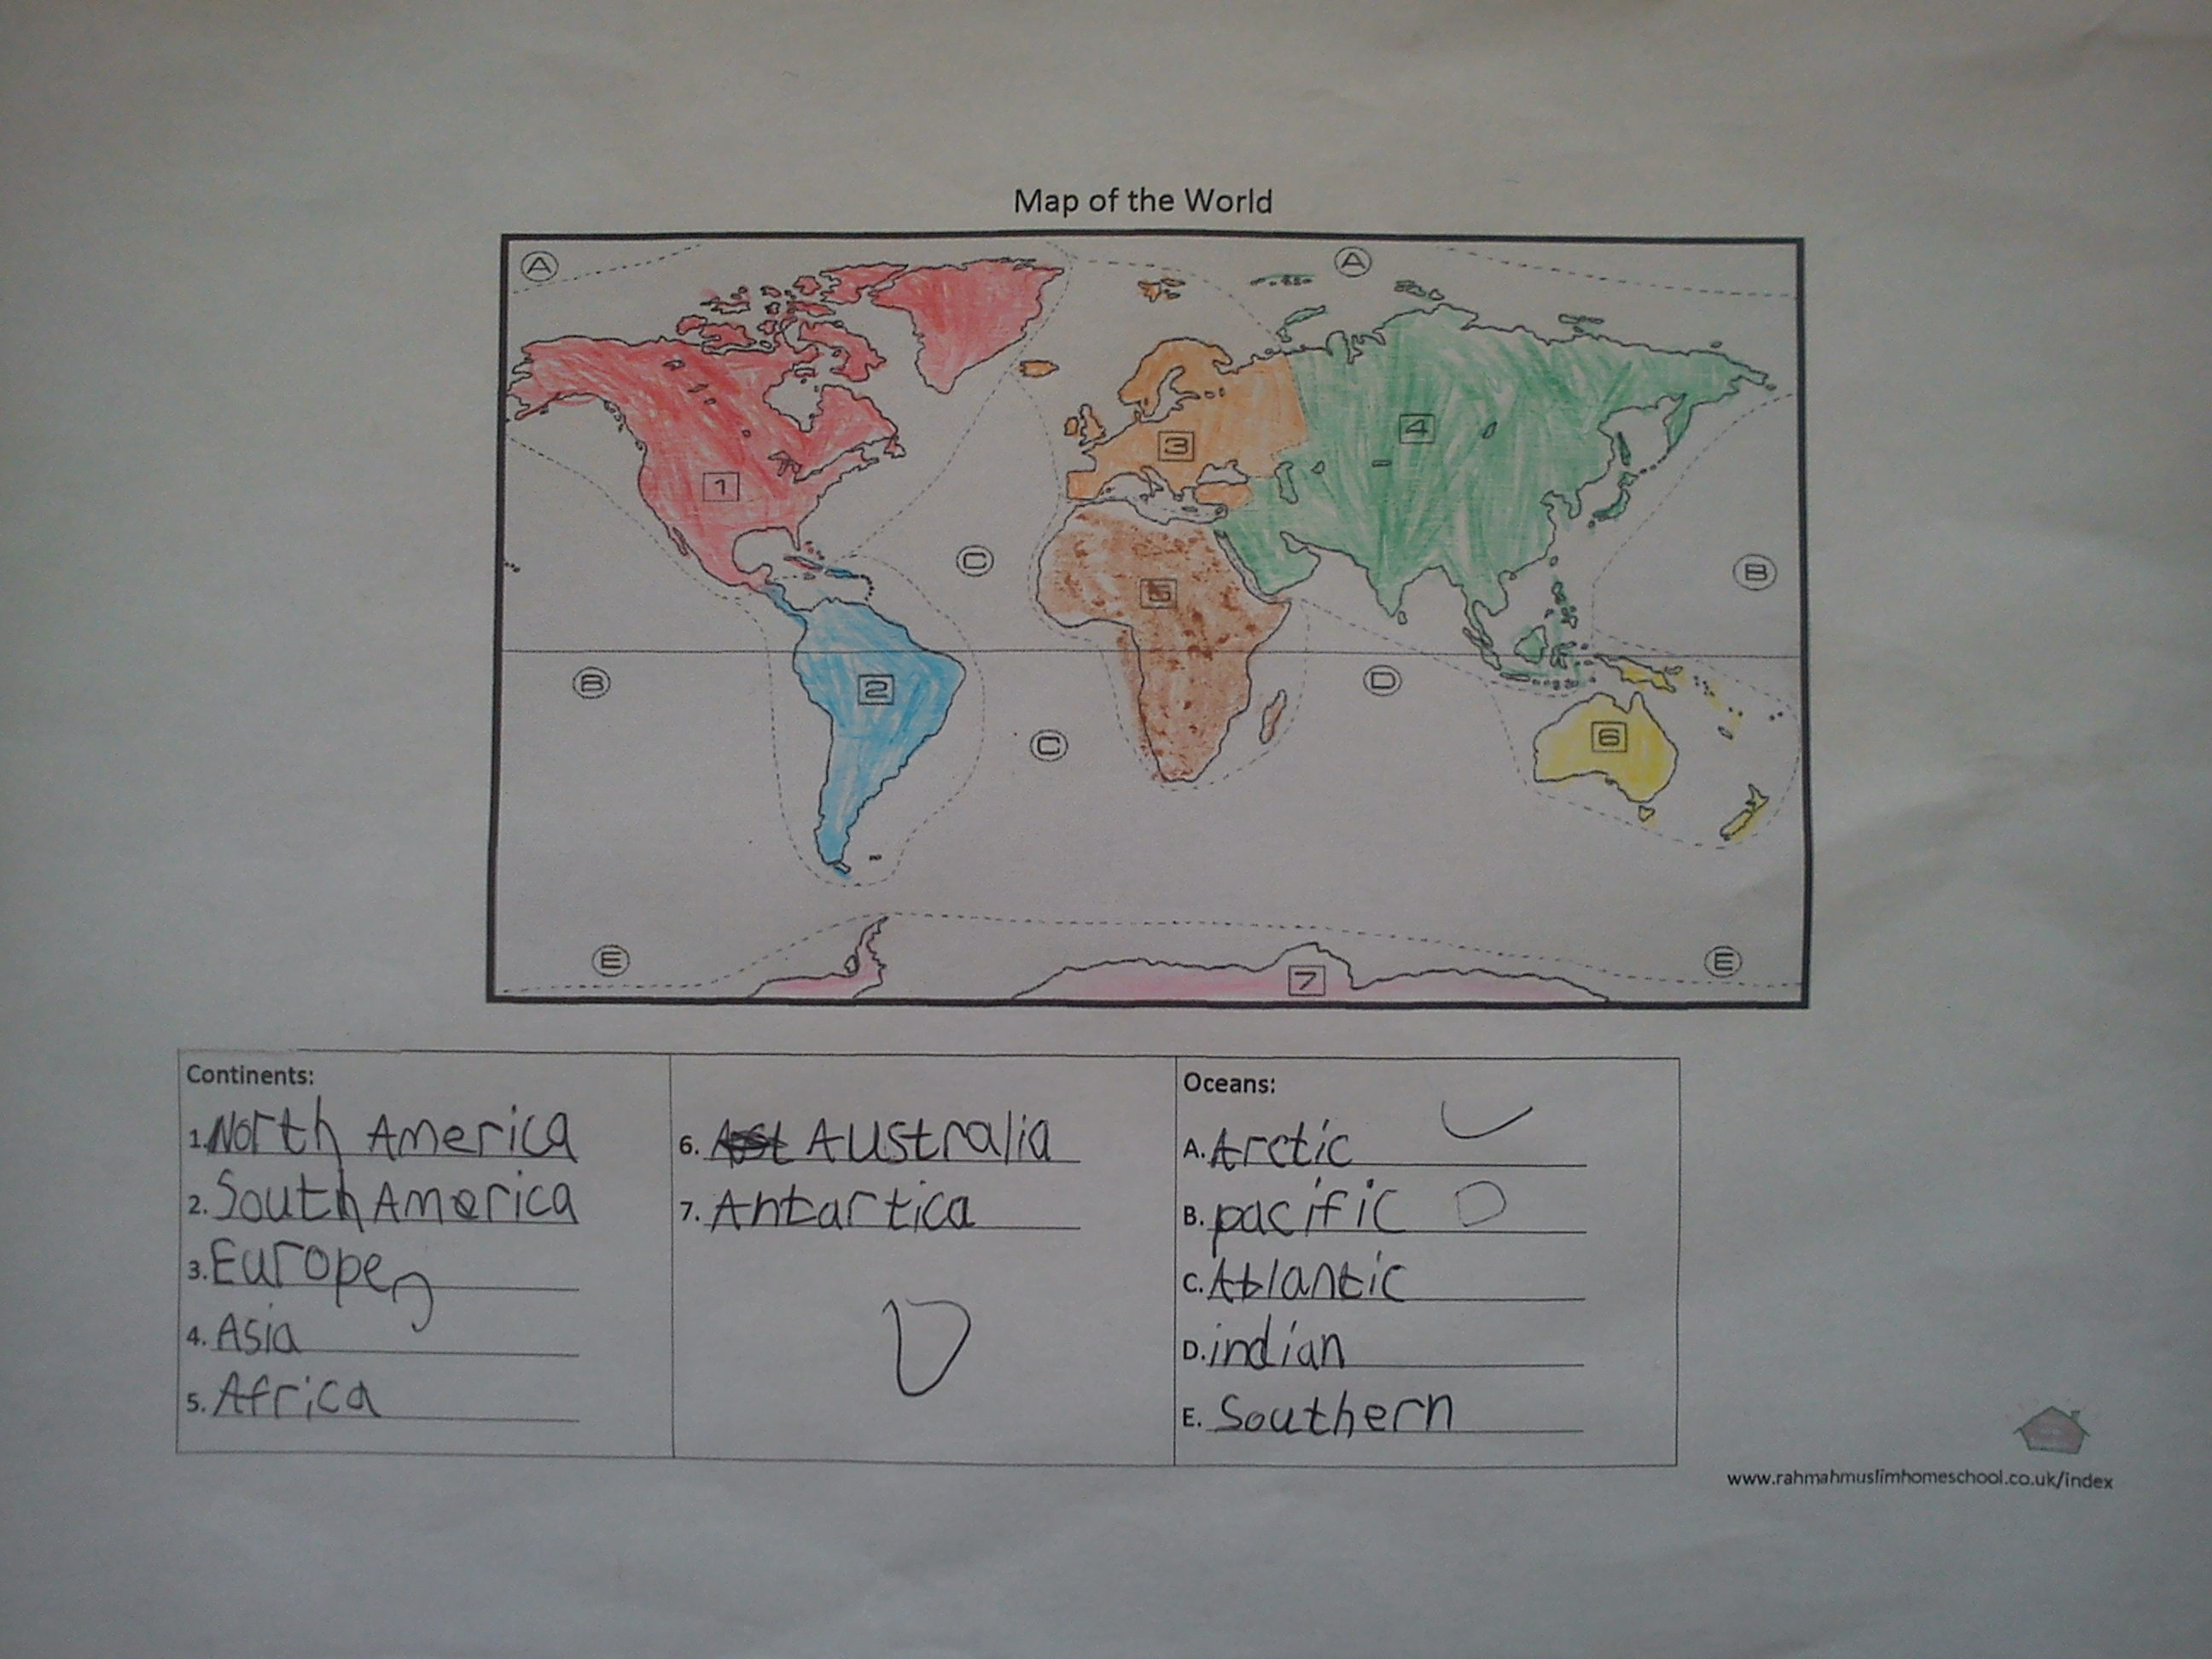 Map of the World
A A
1 3 4
C B
5
B 2 D
C 6
E 7 E
Continents:
1. North America
2. South America
3. Europe
4. Asia
5. Africa
6. Australia
7. Antartica
Oceans:
A. Arctic
B. pacific
C. Atlantic
D. indian
E. Southern
www.rahmahmuslimhomeschool.co.uk/index